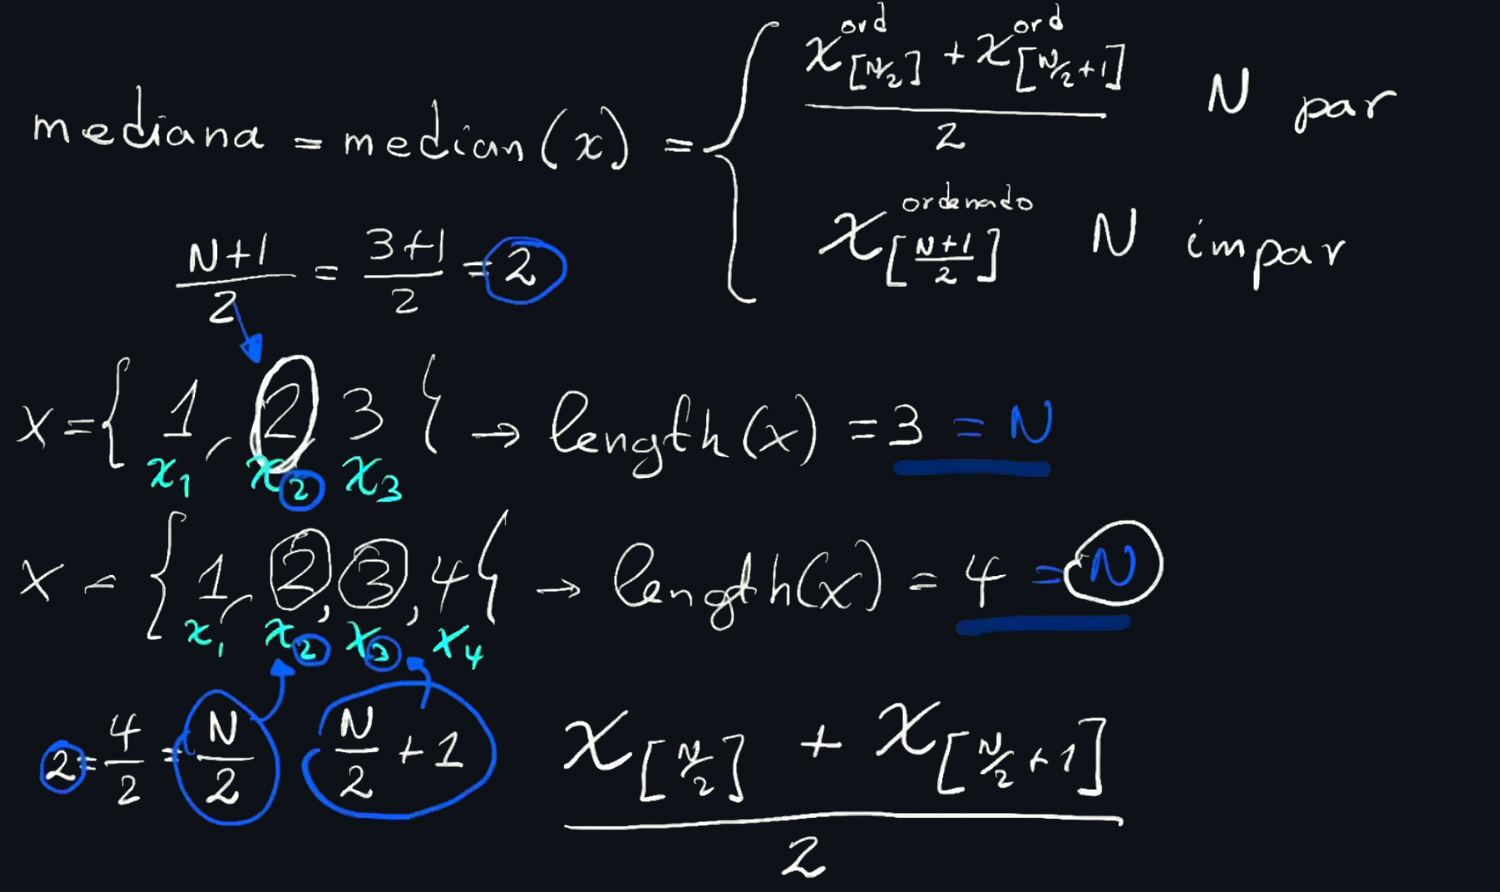 mediana = median(x) = { (x^ord_[N/2] + x^ord_[N/2+1]) / 2   N par
x^ordenado_[(N+1)/2]   N impar
(N+1)/2 = (3+1)/2 = 2
x = { 1, 2, 3 } → length(x) = 3 = N
x_1 x_2 x_3
x = { 1, 2, 3, 4 } → length(x) = 4 = N
x_1 x_2 x_3 x_4
2 = 4/2 = N/2   N/2 + 1   (x_[N/2] + x_[N/2+1]) / 2